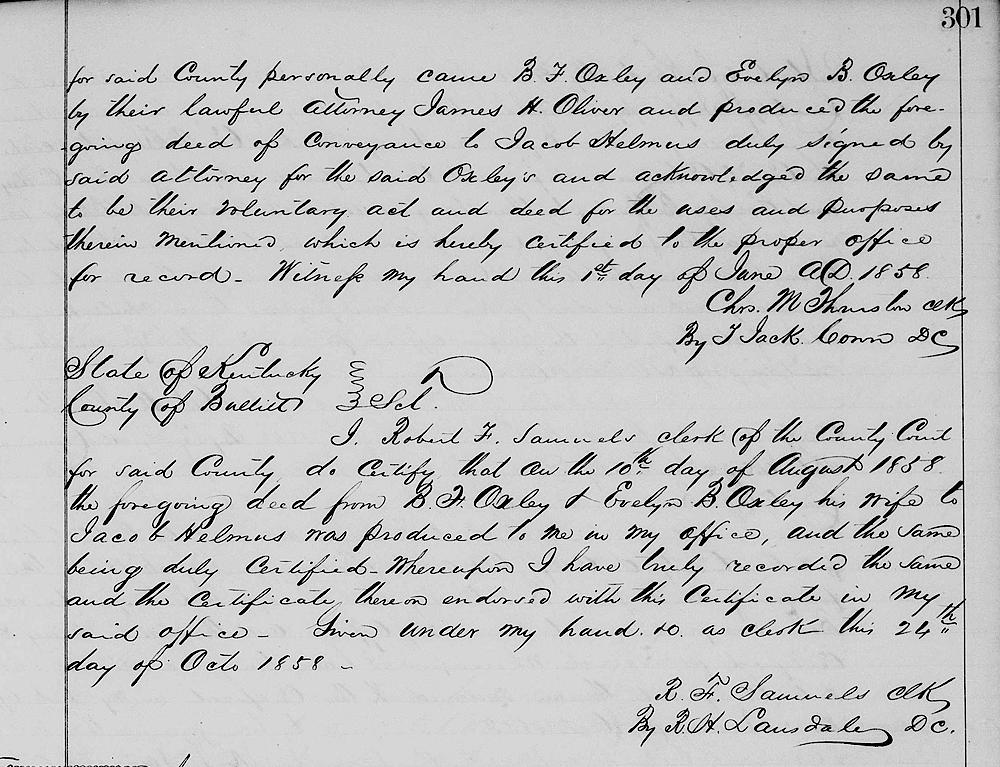 301
for said County personally came B. F. Oxley and Evelyn B. Oxley
by their lawful Attorney James H. Oliver and produced the fore-
going deed of Conveyance to Jacob Helmus duly signed by
said attorney for the said Oxley's and acknowledged the same
to be their voluntary act and deed for the uses and purposes
therein mentioned, which is hereby certified to the proper office
for record - Witness my hand this 1st day of June A.D. 1858.
Chs. M Thurston Clk
By J Jack. Conn DC
State of Kentucky
County of Bullitt Sct.
I. Robert F. Samuels clerk of the County Court
for said County, do certify that on the 10th day of August 1858.
the foregoing deed from B. F. Oxley & Evelyn B. Oxley his wife to
Jacob Helmus was produced to me in my office, and the same
being duly certified - Whereupon I have truly recorded the same
and the certificate thereon endorsed with this certificate in my
said office - Given under my hand. &c. as clerk this 24th
day of Octo 1858 -
R. F. Samuels Clk
By R. H. Lansdale DC.